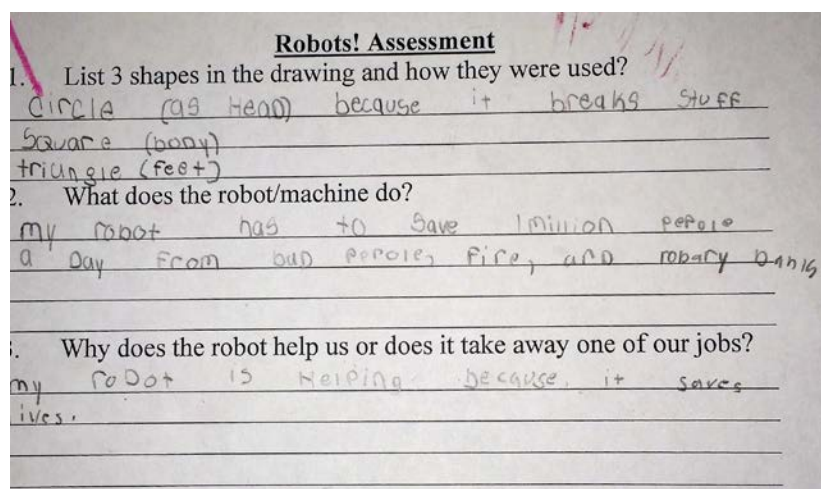 Robots! Assessment
1. List 3 shapes in the drawing and how they were used?
Circle (as Head) because it breaks Stuff
Square (body)
triangle (feet)
2. What does the robot/machine do?
my robot has to Save 1 million pepole
a Day From bad pepole, fire, and robary
. Why does the robot help us or does it take away one of our jobs?
my roBot is Helping because it saves
ives.